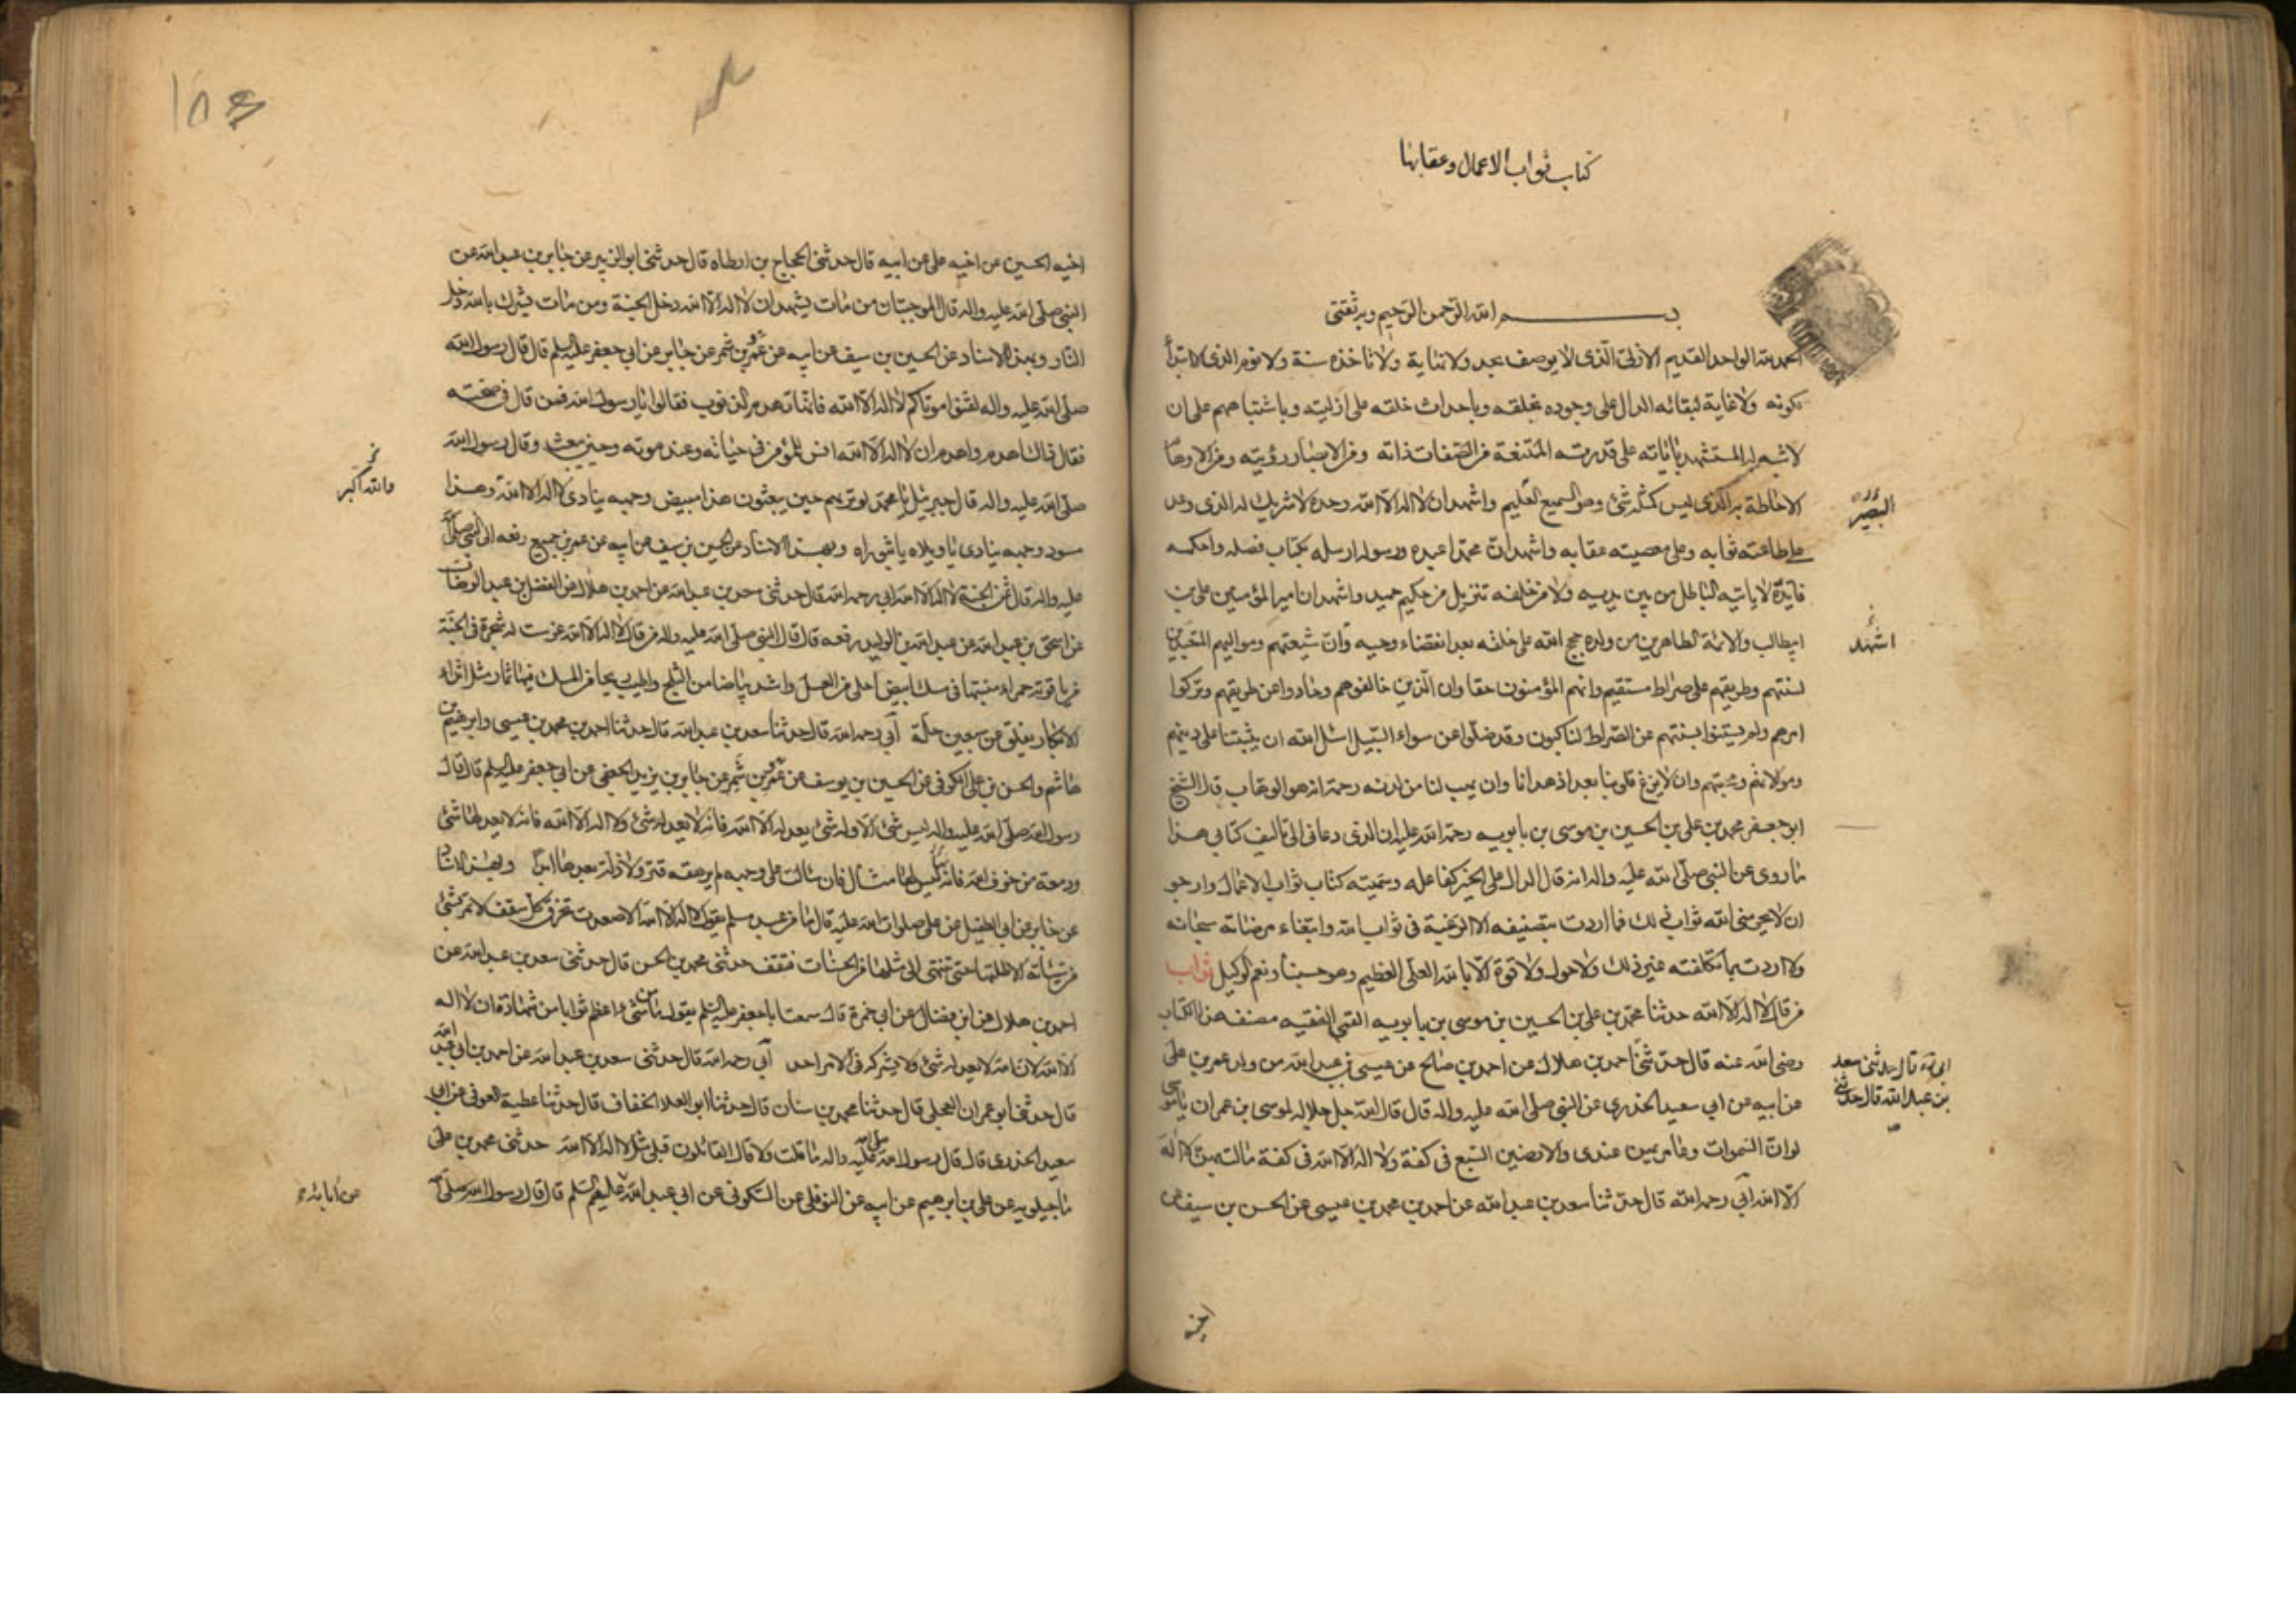 كتاب ثواب الاعمال وعقابها
بسم الله الرحمن الرحيم وبه ثقتى
الحمد لله الواحد القديم الازلى الذى لا يوصف بحد ولا نهاية ولا تاخذه سنة ولا نوم الذى لا ابتدأ
لكونه ولا غاية لبقائه الدال على وجوده بخلقه وباحداث خلقه على ازليته وباشتباههم على ان
لا شبه له المستشهد باٰياته على قدرته الممتنعة من الصفات ذاته ومن الابصار رؤيته ومن الاوهام
الاحاطة به الذى ليس كمثله شئ وهو السميع العليم واشهد ان لا اله الا الله وحده لا شريك له الذى وعد
البصير
على طاعته ثوابه وعلى معصيته عقابه واشهد ان محمدا عبده ورسوله ارسله بكتاب فصله واحكمه
لا ياتيه الباطل من بين يديه ولا من خلفه تنزيل من حكيم حميد واشهد ان امير المؤمنين على بن
ابيطالب والائمة الطاهرين من ولده حجج الله على خلقه بعد انقضاء وحيه وان شيعتهم ومواليهم المتبعين
اشهد
لسنتهم وطريقهم على صراط مستقيم وانهم المؤمنون حقا وان الذين خالفوهم وحادوا عن طريقهم وتركوا
امرهم ولم يستنوا بسنتهم عن الصراط لناكبون وقد ضلوا عن سواء السبيل اسئل الله ان يثبتنا على دينهم
ومولاتهم ومحبتهم وان لا يزغ قلوبنا بعد اذ هدانا وان يهب لنا من لدنه رحمة انه هو الوهاب قال الشيخ
ابو جعفر محمد بن على بن الحسين بن موسى بن بابويه رحمة الله عليه ان الذى دعانى الى تاليف كتابى هذا
ما روى عن النبى صلى الله عليه واله انه قال الدال على الخير كفاعله وسميته كتاب ثواب الاعمال وارجو
ان لا يحرمنى الله ثواب ذلك فما اردت بتصنيفه الا الرغبة فى ثواب الله وابتغاء مرضاته سبحانه
ولا اردت بما تكلفته غير ذلك ولا حول ولا قوة الا بالله العلى العظيم وهو حسبنا ونعم الوكيل ثواب
من قال لا اله الا الله حدثنا محمد بن على بن الحسين بن موسى بن بابويه القمى الفقيه مصنف هذا الكتاب
رضى الله عنه قال حدثنى احمد بن هلال عن احمد بن صالح عن عيسى بن عبد الله من ولد عمر بن على
ابى ره قال حدثنى سعد
بن عبد الله قال حدثنى
عن ابيه عن ابى سعيد الخدرى عن النبى صلى الله عليه واله قال قال الله جل جلاله لموسى بن عمران ياموسى
لو ان السموات وعامريهن عندى والارضين السبع فى كفة ولا اله الا الله فى كفة مالت بهن لا اله
الا الله ابى رحمه الله قال حدثنا سعد بن عبد الله عن احمد بن محمد بن عيسى عن الحسن بن سيف عن
اخيه
اخيه الحسين عن اخيه على عن ابيه قال حدثنى الحجاج بن ارطاه قال حدثنى ابو الزبير عن جابر بن عبد الله عن
النبى صلى الله عليه واله قال الموجبتان من مات يشهد ان لا اله الا الله دخل الجنة ومن مات يشرك بالله دخل
النار وبهذا الاسناد عن الحسين بن سيف عن ابيه عن عمرو بن شمر عن جابر عن ابى جعفر عليه السلم قال قال رسول الله
صلى الله عليه واله لقنوا موتاكم لا اله الا الله فانها تهدم الذنوب فقالوا يا رسول الله فمن قال فى صحته
فقال ذاك اهدم واهدم ان لا اله الا الله انس للمؤمن فى حياته وعند موته وحين يبعث وقال رسول الله
صلى الله عليه واله قال جبرئيل يا محمد لو تريهم حين يبعثون هذا مبيض وجهه ينادى لا اله الا الله وهذا
والله اكبر
مسود وجهه ينادى يا ويلاه يا ثبوراه وبهذا الاسناد عن الحسين بن سيف عن ابيه عن عمرو بن جميع رفعه الى النبى صلى الله
عليه واله قال ثمن الجنة لا اله الا الله ابى رحمه الله قال حدثنى سعد بن عبد الله عن احمد بن هلال عن الفضل بن عبد الوهاب
عن اسحق بن عبد الله عن عبد الله بن الوليد رفعه قال قال النبى صلى الله عليه واله من قال لا اله الا الله غرست له شجرة فى الجنة
من ياقوتة حمراء منبتها فى مسك ابيض احلى من العسل واشد بياضا من الثلج واطيب ريحا من المسك فيها ثمار مثل اثداء
الابكار يفلق عن سبعين حلة ابى رحمه الله قال حدثنا سعد بن عبد الله قال حدثنا احمد بن محمد بن عيسى وابرهيم بن
هاشم والحسن بن على الكوفى عن الحسين بن يوسف عن عمرو بن شمر عن جابر بن يزيد الجعفى عن ابى جعفر عليه السلم قال قال
رسول الله صلى الله عليه واله ليس شئ الا وله شئ يعدله الا الله فانه لا يعدله شئ ولا اله الا الله فانه لا يعدلها شئ
ودمعة من خوف الله فانه ليس لها مثقال فان سالت على وجهه لم يرهقه قتر ولا ذلة بعدها ابدا وبهذا الاسناد
عن جابر عن ابى الطفيل عن على صلوات الله عليه قال ما من عبد مسلم يقول لا اله الا الله الا صعدت تخرق كل سقف لا تمر بشئ
من سيئاته الا طلستها حتى تنتهى الى مثلها من الحسنات فتقف حدثنى محمد بن الحسن قال حدثنى سعد بن عبد الله عن
احمد بن هلال عن ابن فضال عن ابى حمزة قال سمعت ابا جعفر عليه السلم يقول ما من شئ اعظم ثوابا من شهادة ان لا اله
الا الله لان الله لا يعدله شئ ولا يشركه فى الامر احد ابى رحمه الله قال حدثنى سعد بن عبد الله عن احمد بن ابى عبد الله
قال حدثنى ابو عمران العجلى قال حدثنا محمد بن سنان قال حدثنا ابو العلا الخفاف قال حدثنا عطية العوفى عن ابى
سعيد الخدرى قال قال رسول الله صلى الله عليه واله ما قلت ولا قال القائلون قبلى مثل لا اله الا الله حدثنى محمد بن على
ماجيلويه عن على بن ابرهيم عن ابيه عن النوفلى عن السكونى عن ابى عبد الله عليهم السلم قال قال رسول الله صلى الله
عن ابائه ع